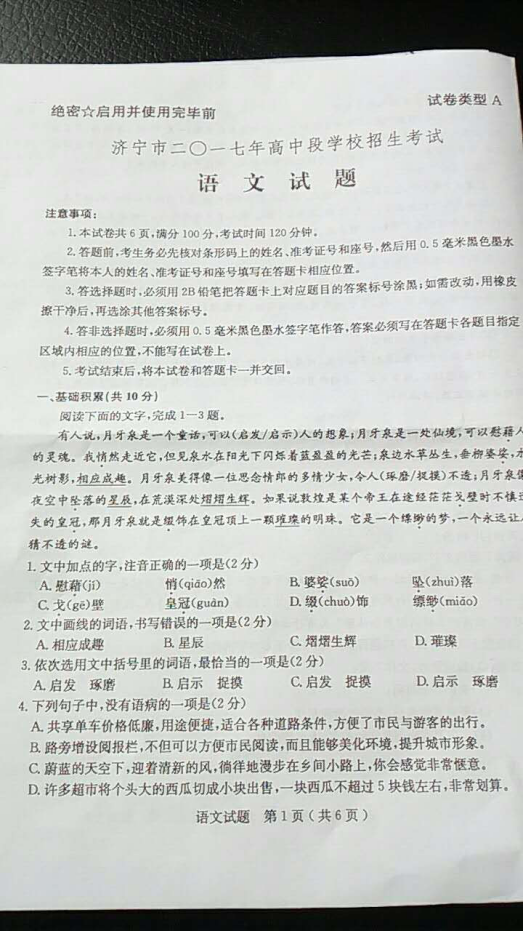 绝密☆启用并使用完毕前
试卷类型 A
济宁市二〇一七年高中段学校招生考试
语 文 试 题
注意事项:
1.本试卷共6页,满分100分,考试时间120分钟。
2.答题前,考生务必先核对条形码上的姓名、准考证号和座号,然后用0.5毫米黑色墨水
签字笔将本人的姓名、准考证号和座号填写在答题卡相应位置。
3.答选择题时,必须用2B铅笔把答题卡上对应题目的答案标号涂黑;如需改动,用橡皮
擦干净后,再选涂其他答案标号。
4.答非选择题时,必须用0.5毫米黑色墨水签字笔作答,答案必须写在答题卡各题目指定
区域内相应的位置,不能写在试卷上。
5.考试结束后,将本试卷和答题卡一并交回。
一、基础积累(共10分)
阅读下面的文字,完成1—3题。
有人说,月牙泉是一个童话,可以(启发/启示)人的想象;月牙泉是一处仙境,可以慰藉人
的灵魂。我悄然走近它,但见泉水在阳光下闪烁着蓝盈盈的光芒;泉边水草丛生,垂柳婆娑,水
光树影,相应成趣。月牙泉美得像一位思念情郎的多情少女,令人(琢磨/捉摸)不透;月牙泉像
夜空中坠落的星辰,在荒漠深处熠熠生辉。如果说敦煌是某个帝王在途经茫茫戈壁时不慎
失的皇冠,那月牙泉就是缀饰在皇冠顶上一颗璀璨的明珠。它是一个缥缈的梦,一个永远让
猜不透的谜。
1.文中加点的字,注音正确的一项是(2分)
A.慰藉(jí) 悄(qiāo)然 B.婆娑(suō) 坠(zhuì)落
C.戈(gē)壁 皇冠(guān) D.缀(chuò)饰 缥缈(miǎo)
2.文中画线的词语,书写错误的一项是(2分)
A.相应成趣 B.星辰 C.熠熠生辉 D.璀璨
3.依次选用文中括号里的词语,最恰当的一项是(2分)
A.启发 琢磨 B.启示 捉摸 C.启发 捉摸 D.启示 琢磨
4.下列句子中,没有语病的一项是(2分)
A.共享单车价格低廉,用途便捷,适合各种道路条件,方便了市民与游客的出行。
B.路旁增设阅报栏,不但可以方便市民阅读,而且能够美化环境,提升城市形象。
C.蔚蓝的天空下,迎着清新的风,徜徉地漫步在乡间小路上,你会感觉非常惬意。
D.许多超市将个头大的西瓜切成小块出售,一块西瓜不超过5块钱左右,非常划算。
语文试题 第1页(共6页)